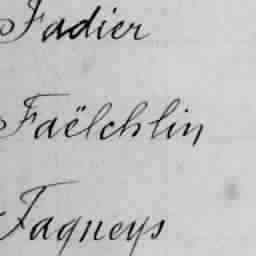 Fadier
Faëlchlin
Faqueys